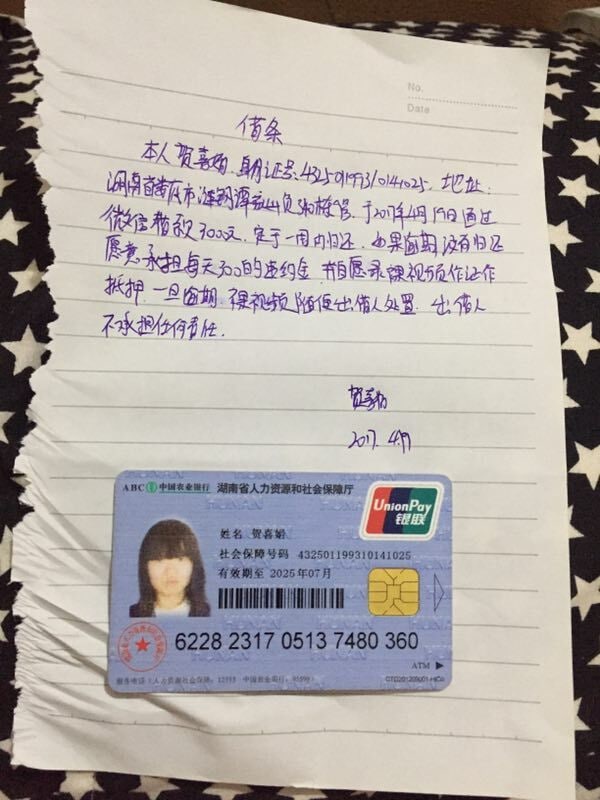 No.
Date
借条
本人 [姓名略] 身份证号：[号码略] 地址：
[地址略] 于2017年4月19日通过
微信借款3000元，定于一周内归还，如果逾期没有归还
愿意承担每天300的违约金，并自愿录裸视频作证作
抵押，一旦逾期，裸视频随便出借人处置，出借人
不承担任何责任.
[签名略]
2017. 4.19
ABC 中国农业银行 湖南省人力资源和社会保障厅
UnionPay
银联
姓名 [略]
社会保障号码 [略]
有效期至 2025年07月
[卡号略]
ATM
服务电话（人力资源社会保障：12333 中国农业银行：95599）